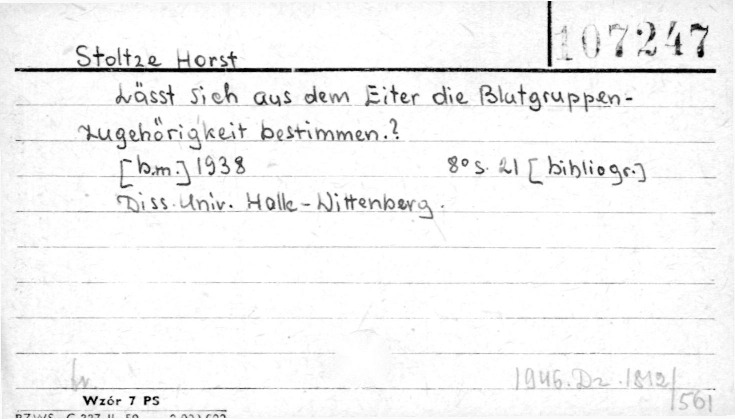 107247
Stoltze Horst
Lässt sich aus dem Eiter die Blutgruppen-
zugehörigkeit bestimmen.?
[b.m.] 1938 8° s. 21 [bibliogr.]
Diss. Univ. Halle-Wittenberg.
1946. Dz. 1812/
561
Wzór 7 PS